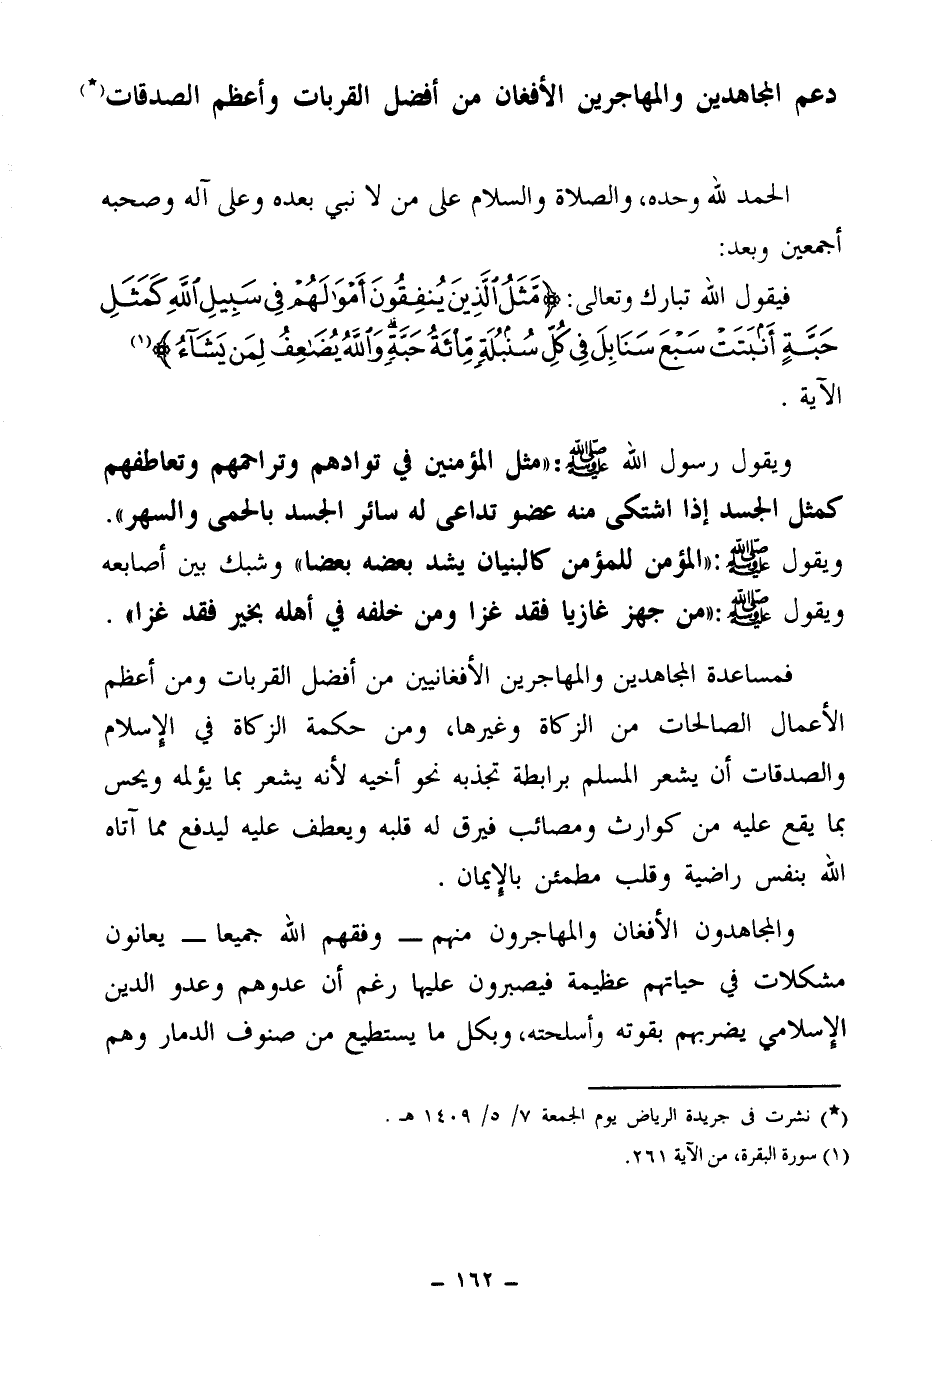 دعم المجاهدين والمهاجرين الأفغان من أفضل القربات وأعظم الصدقات(*)
الحمد لله وحده، والصلاة والسلام على من لا نبي بعده وعلى آله وصحبه
أجمعين وبعد:
فيقول الله تبارك وتعالى: ﴿مَّثَلُ ٱلَّذِينَ يُنفِقُونَ أَمْوَٰلَهُمْ فِى سَبِيلِ ٱللَّهِ كَمَثَلِ
حَبَّةٍ أَنۢبَتَتْ سَبْعَ سَنَابِلَ فِى كُلِّ سُنۢبُلَةٍ مِّا۟ئَةُ حَبَّةٍ ۗ وَٱللَّهُ يُضَٰعِفُ لِمَن يَشَآءُ﴾(١)
الآية .
ويقول رسول الله ﷺ: «مثل المؤمنين في توادهم وتراحمهم وتعاطفهم
كمثل الجسد إذا اشتكى منه عضو تداعى له سائر الجسد بالحمى والسهر».
ويقول ﷺ: «المؤمن للمؤمن كالبنيان يشد بعضه بعضا» وشبك بين أصابعه
ويقول ﷺ: «من جهز غازيا فقد غزا ومن خلفه في أهله بخير فقد غزا» .
فمساعدة المجاهدين والمهاجرين الأفغانيين من أفضل القربات ومن أعظم
الأعمال الصالحات من الزكاة وغيرها، ومن حكمة الزكاة في الإسلام
والصدقات أن يشعر المسلم برابطة تجذبه نحو أخيه لأنه يشعر بما يؤلمه ويحس
بما يقع عليه من كوارث ومصائب فيرق له قلبه ويعطف عليه ليدفع مما آتاه
الله بنفس راضية وقلب مطمئن بالإيمان .
والمجاهدون الأفغان والمهاجرون منهم ـ وفقهم الله جميعا ـ يعانون
مشكلات في حياتهم عظيمة فيصبرون عليها رغم أن عدوهم وعدو الدين
الإسلامي يضربهم بقوته وأسلحته، وبكل ما يستطيع من صنوف الدمار وهم
(*) نشرت فى جريدة الرياض يوم الجمعة ٧/ ٥/ ١٤٠٩ هـ .
(١) سورة البقرة، من الآية ٢٦١.
ـ ١٦٢ ـ